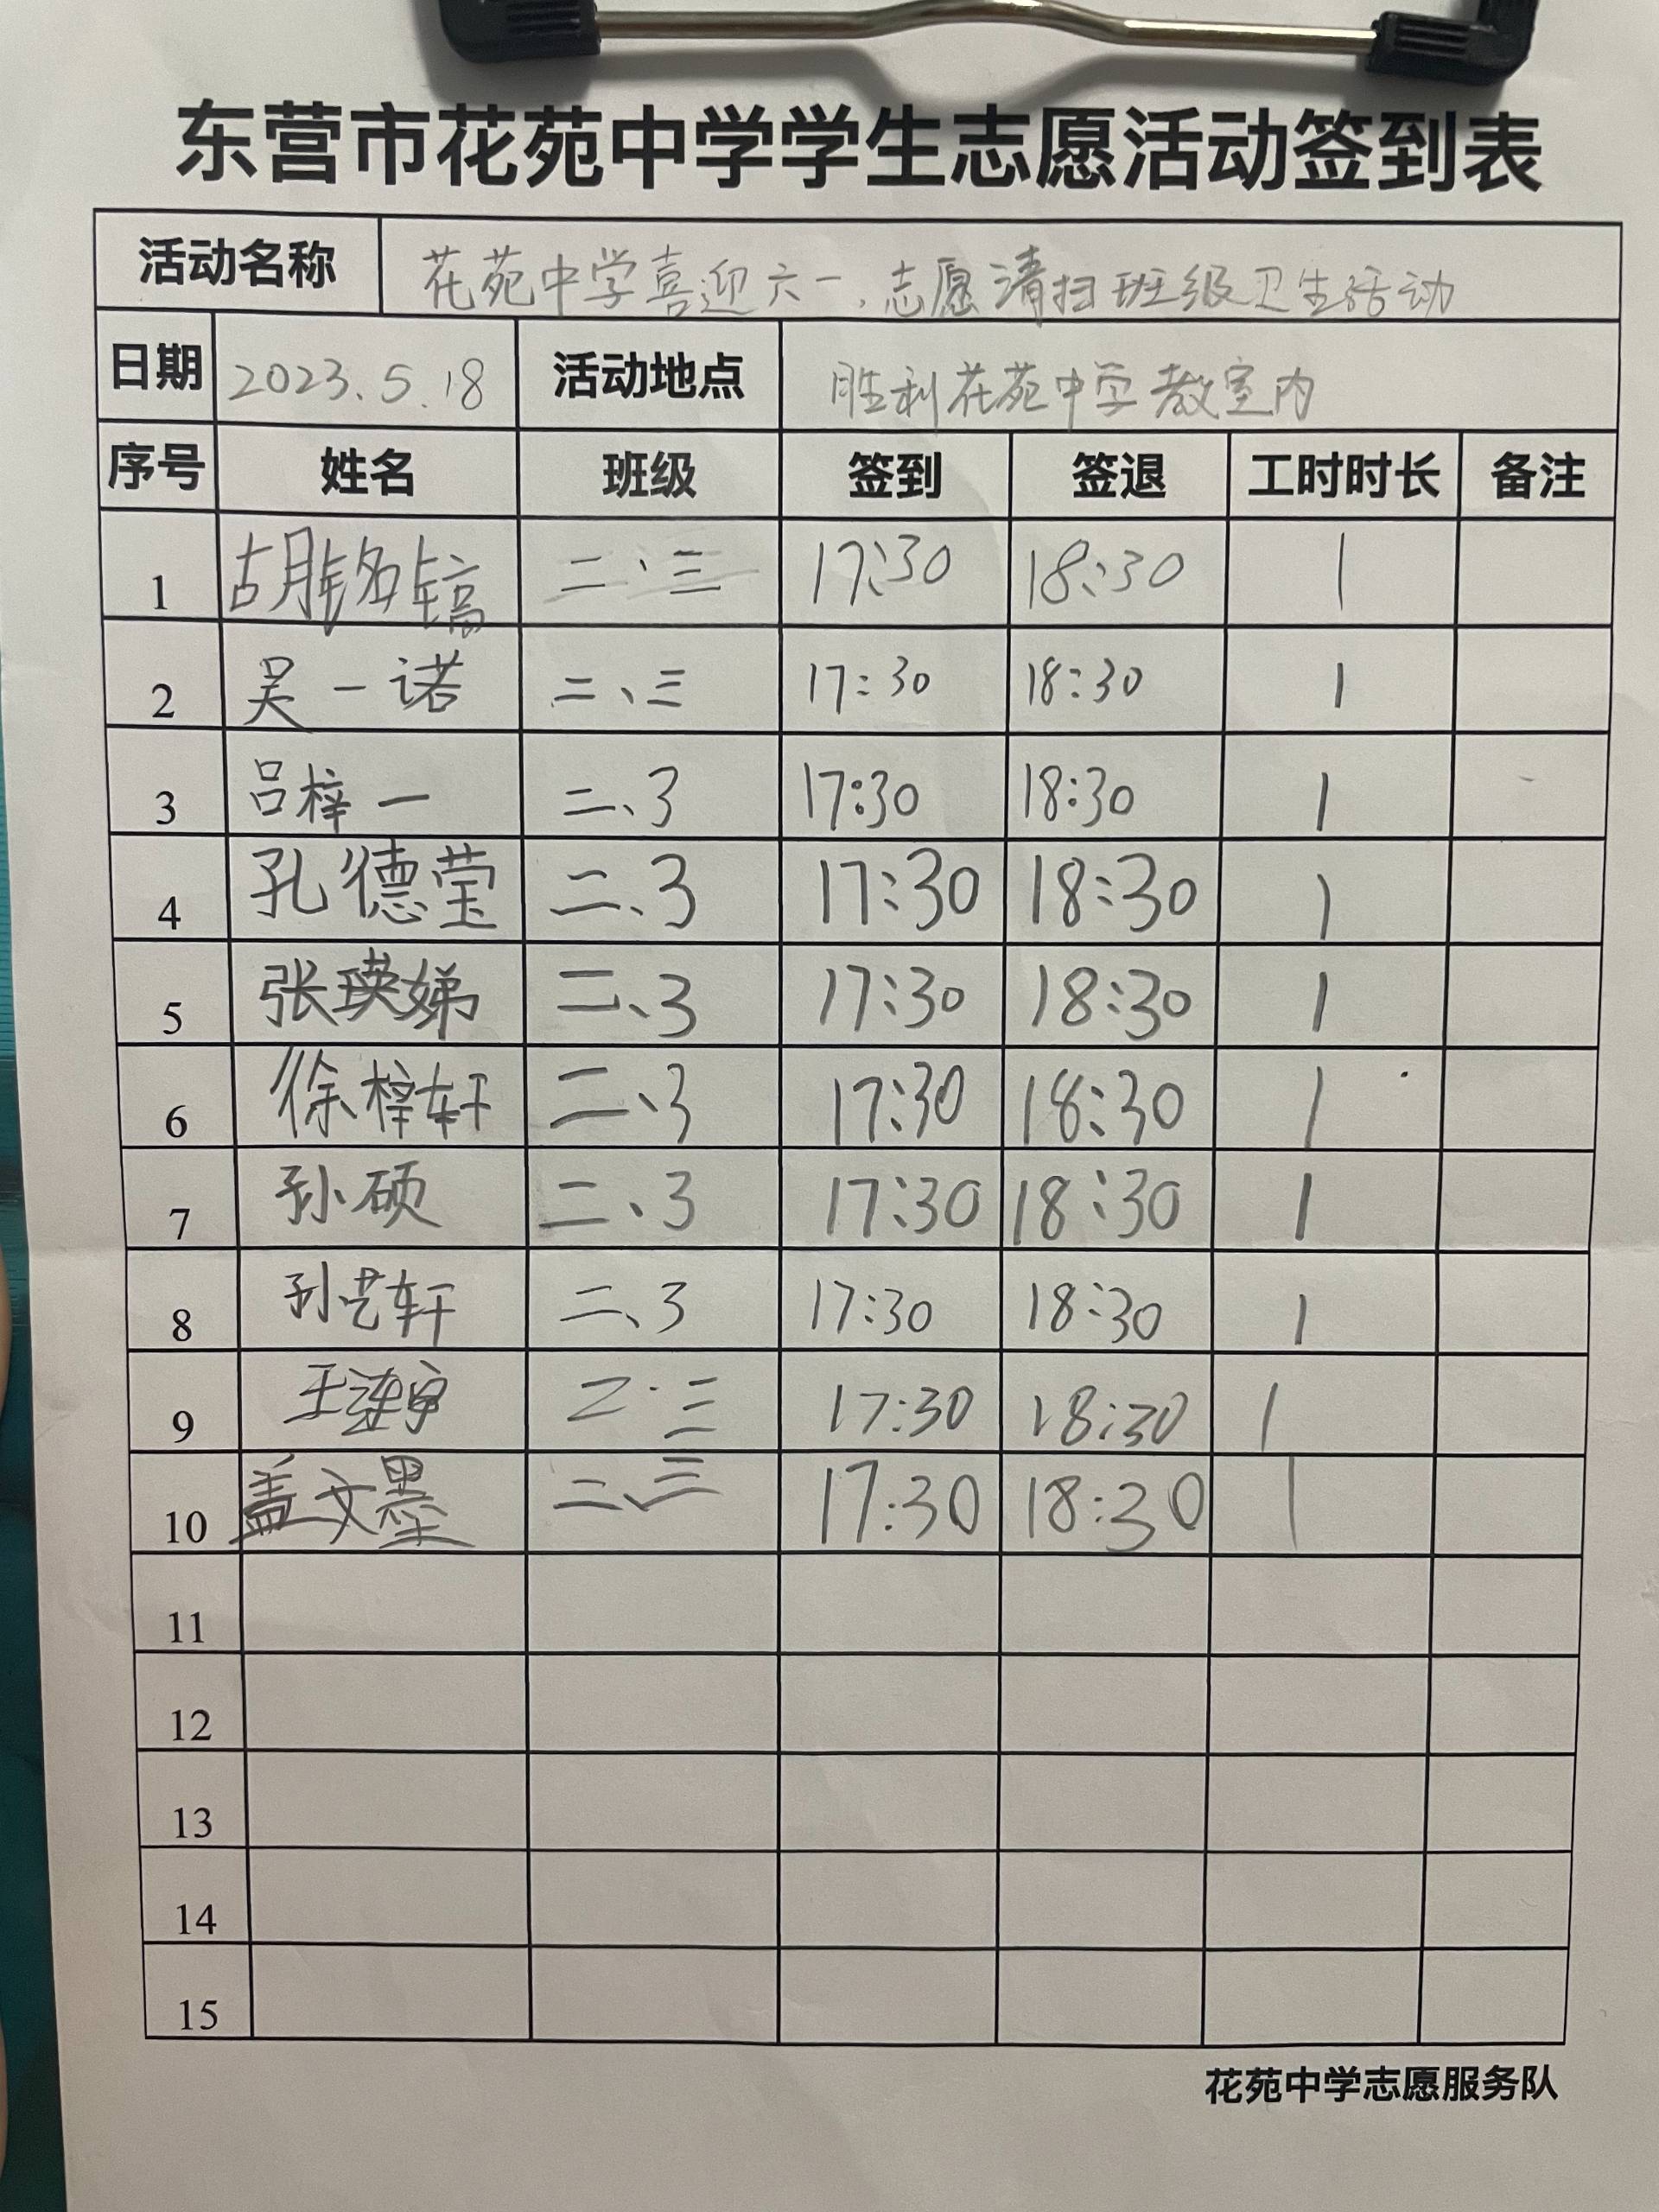 东营市花苑中学学生志愿活动签到表
活动名称 花苑中学喜迎六一,志愿清扫班级卫生活动
日期 2023.5.18 活动地点 胜利花苑中学教室内
序号 姓名 班级 签到 签退 工时时长 备注
1 胡铭镐 二、三 17:30 18:30 1
2 吴一诺 二、三 17:30 18:30 1
3 吕梓一 二、3 17:30 18:30 1
4 孔德莹 二、3 17:30 18:30 1
5 张瑛娣 二、3 17:30 18:30 1
6 徐梓轩 二、3 17:30 18:30 1
7 孙硕 二、3 17:30 18:30 1
8 孙艺轩 二、3 17:30 18:30 1
9 王 二·三 17:30 18:30 1
10 盖文墨 二、三 17:30 18:30 1
11
12
13
14
15
花苑中学志愿服务队